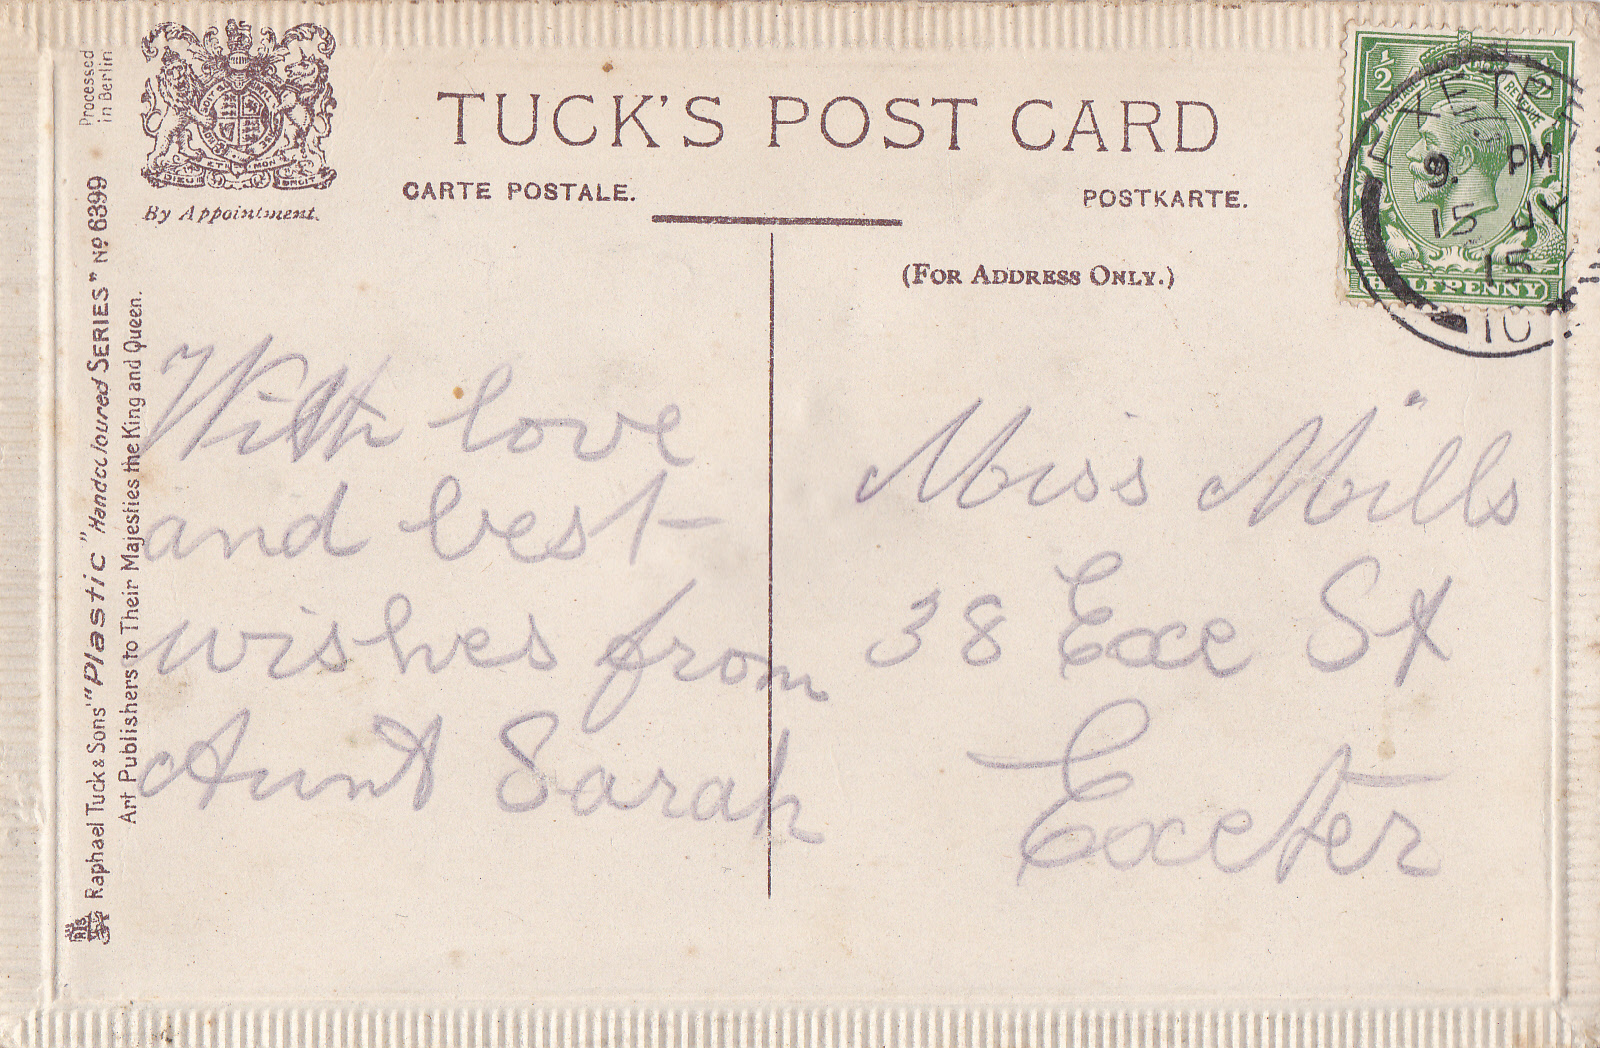 TUCK'S POST CARD
CARTE POSTALE.
POSTKARTE.
(FOR ADDRESS ONLY.)
By Appointment.
Processed
in Berlin
Raphael Tuck & Sons' "Plastic "Handcoloured SERIES" No 6399
Art Publishers to Their Majesties the King and Queen.
DIEU ET MON DROIT
POSTAGE REVENUE
½ ½
HALFPENNY
EXETER
9. PM
15
15
10
With love
and best
wishes from
Aunt Sarah
Miss Mills
38 Exe St
Exeter